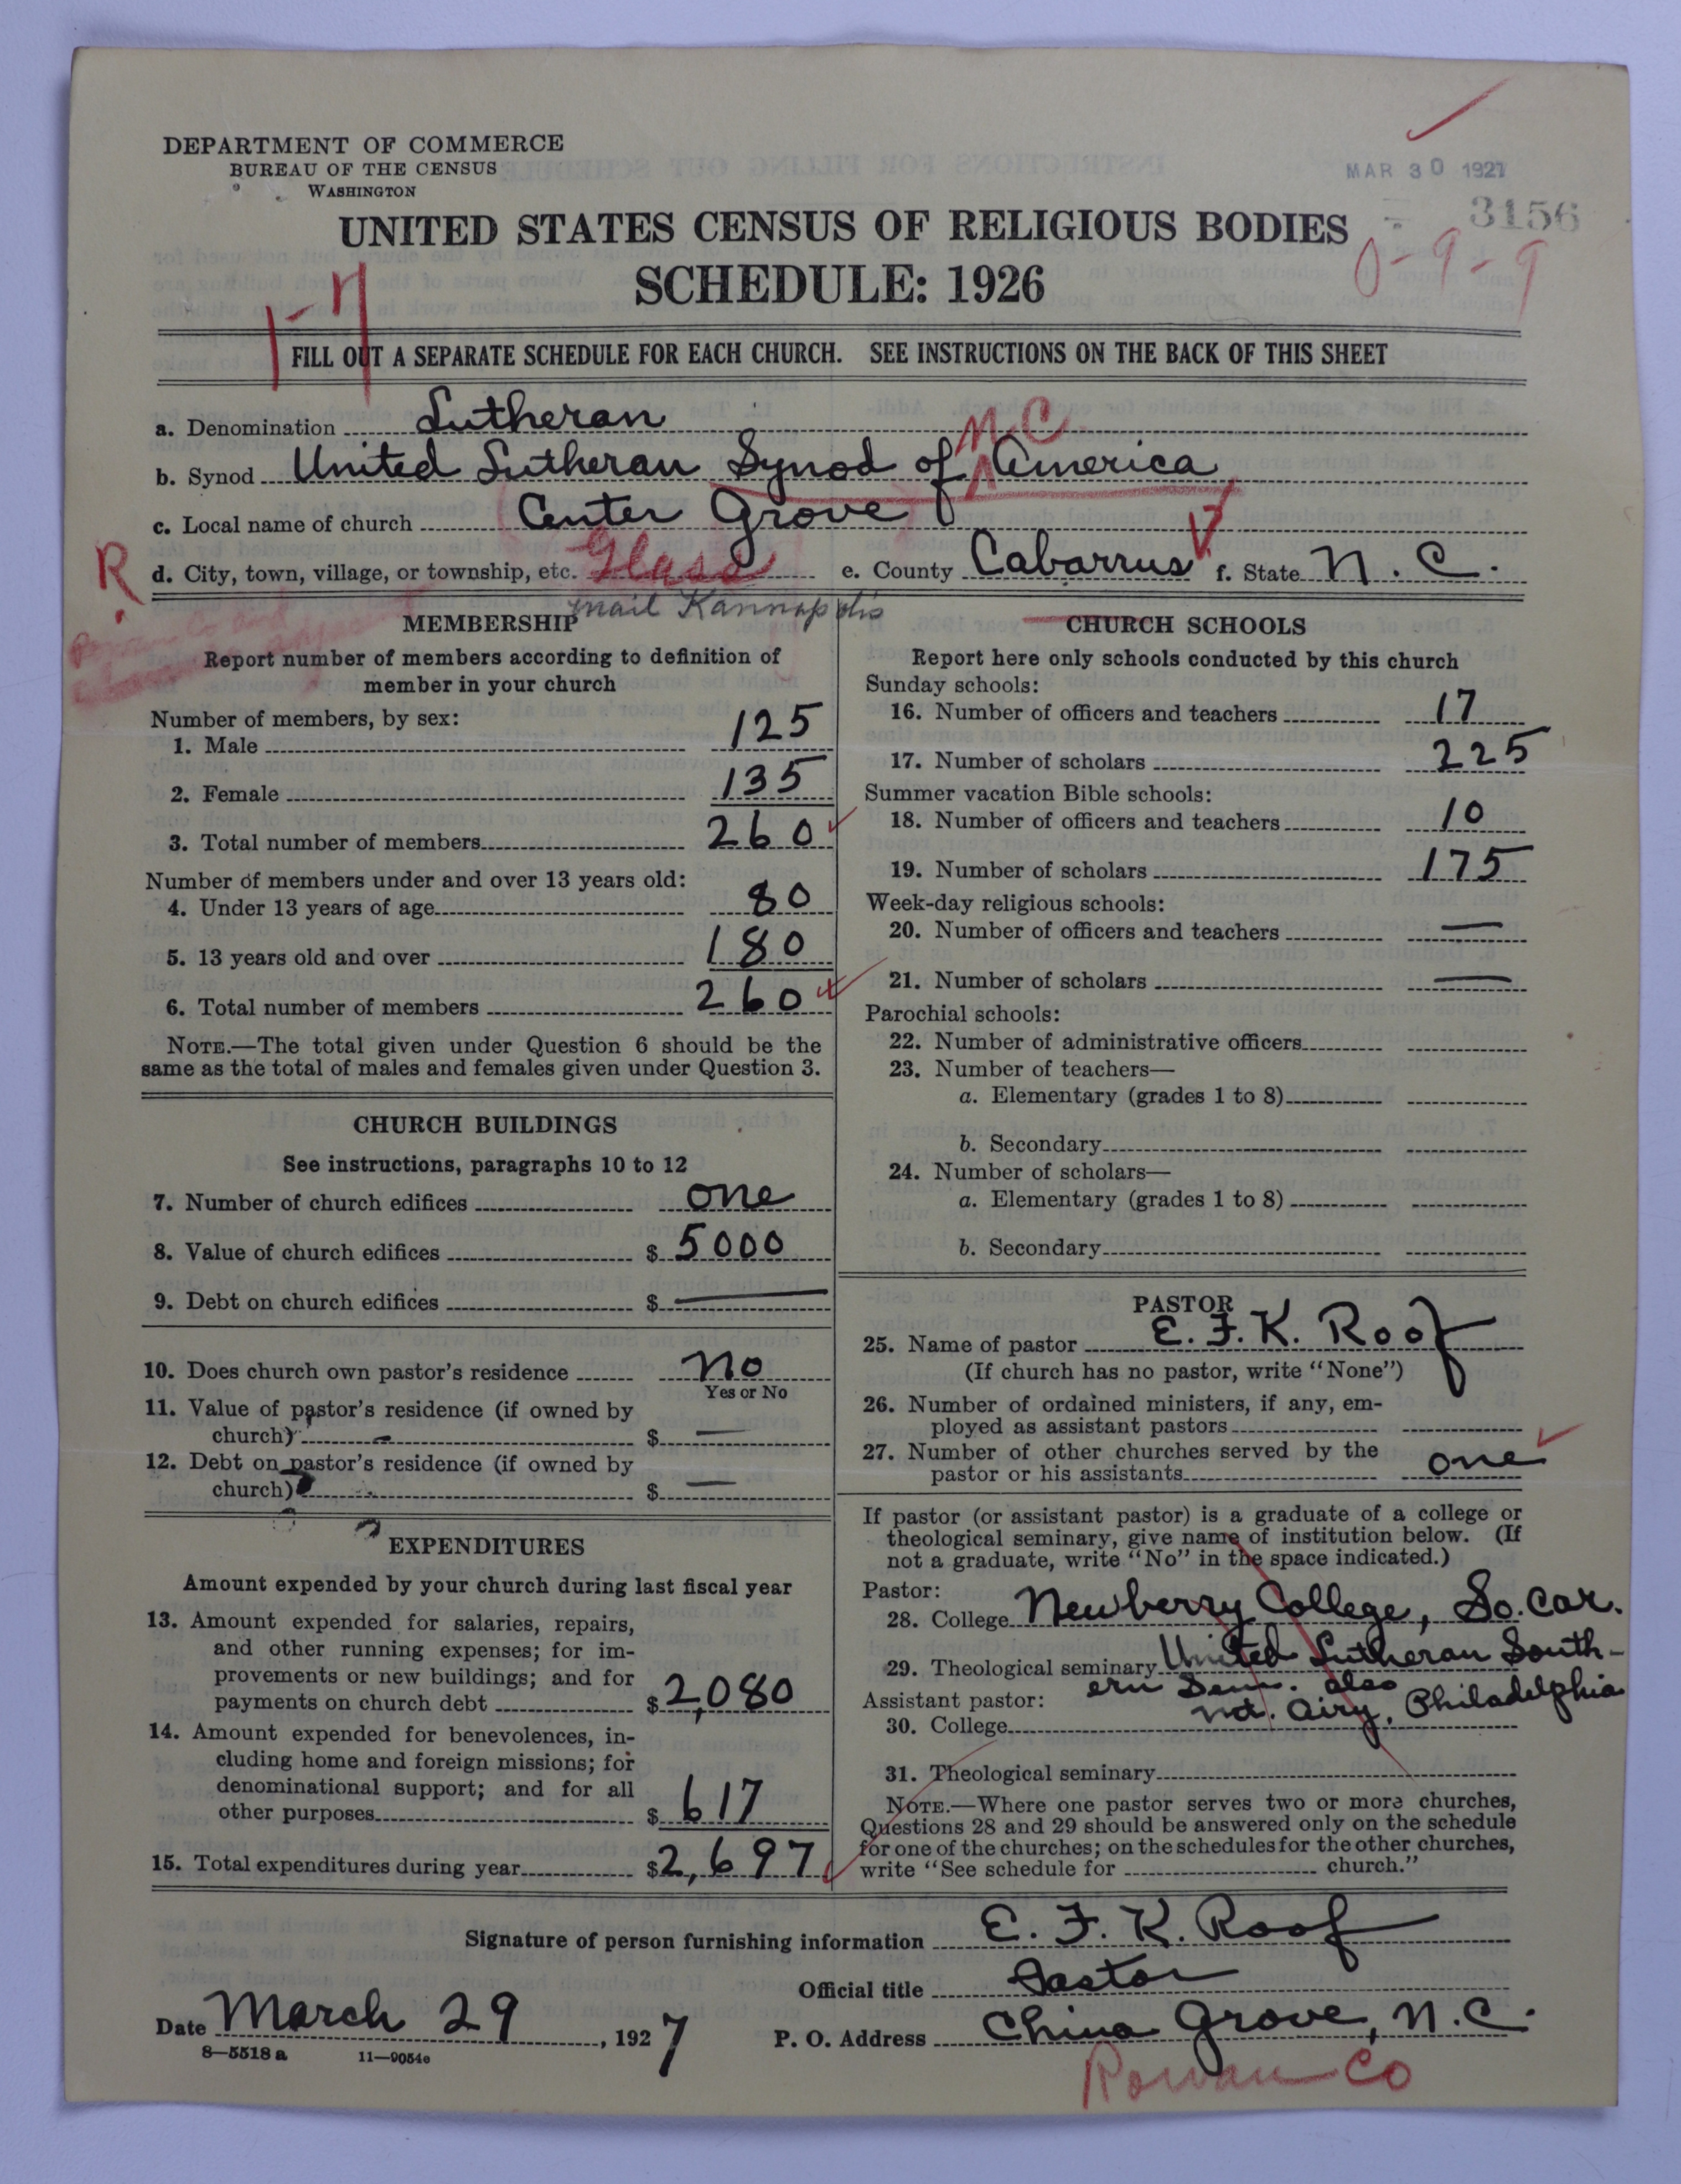 DEPARTMENT OF COMMERCE
BUREAU OF THE CENSUS
WASHINGTON
MAR 30 1927
3156
UNITED STATES CENSUS OF RELIGIOUS BODIES
0-9-9
SCHEDULE: 1926
1-17
FILL OUT A SEPARATE SCHEDULE FOR EACH CHURCH. SEE INSTRUCTIONS ON THE BACK OF THIS SHEET
a. Denomination Lutheran
N C
b. Synod United Lutheran Synod of America
c. Local name of church Center Grove
R
d. City, town, village, or township, etc. Glass e. County Cabarrus f. State N. C.
mail Kannapolis
MEMBERSHIP
Report number of members according to definition of
member in your church
Number of members, by sex:
1. Male 125
2. Female 135
3. Total number of members 260
Number of members under and over 13 years old:
4. Under 13 years of age 80
5. 13 years old and over 180
6. Total number of members 260
NOTE.—The total given under Question 6 should be the
same as the total of males and females given under Question 3.
CHURCH BUILDINGS
See instructions, paragraphs 10 to 12
7. Number of church edifices one
8. Value of church edifices $ 5000
9. Debt on church edifices $ —
10. Does church own pastor's residence No
Yes or No
11. Value of pastor's residence (if owned by
church) $ —
12. Debt on pastor's residence (if owned by
church) $ —
EXPENDITURES
Amount expended by your church during last fiscal year
13. Amount expended for salaries, repairs,
and other running expenses; for im-
provements or new buildings; and for
payments on church debt $ 2,080
14. Amount expended for benevolences, in-
cluding home and foreign missions; for
denominational support; and for all
other purposes $ 617
15. Total expenditures during year $ 2,697
CHURCH SCHOOLS
Report here only schools conducted by this church
Sunday schools:
16. Number of officers and teachers 17
17. Number of scholars 225
Summer vacation Bible schools:
18. Number of officers and teachers 10
19. Number of scholars 175
Week-day religious schools:
20. Number of officers and teachers —
21. Number of scholars —
Parochial schools:
22. Number of administrative officers
23. Number of teachers—
a. Elementary (grades 1 to 8)
b. Secondary
24. Number of scholars—
a. Elementary (grades 1 to 8)
b. Secondary
PASTOR
25. Name of pastor E. F. K. Roof
(If church has no pastor, write "None")
26. Number of ordained ministers, if any, em-
ployed as assistant pastors
27. Number of other churches served by the
pastor or his assistants one
If pastor (or assistant pastor) is a graduate of a college or
theological seminary, give name of institution below. (If
not a graduate, write "No" in the space indicated.)
Pastor:
28. College Newberry College, So. Car.
29. Theological seminary United Lutheran South-
ern Sem. also
Assistant pastor:
Mt. Airy, Philadelphia
30. College
31. Theological seminary
NOTE.—Where one pastor serves two or more churches,
Questions 28 and 29 should be answered only on the schedule
for one of the churches; on the schedules for the other churches,
write "See schedule for church."
Signature of person furnishing information E. F. K. Roof
Official title Pastor
Date March 29, 1927
P. O. Address China Grove, N. C.
8—5518 a 11—9054e
Rowan Co